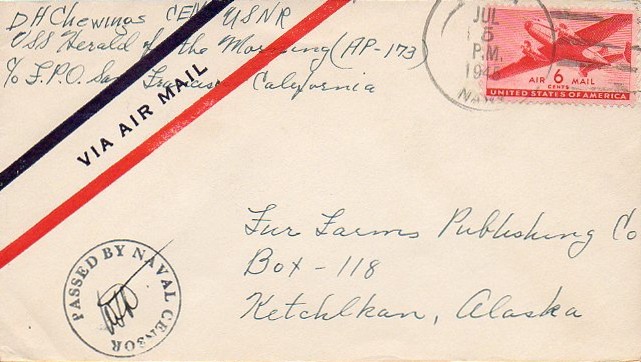 D H Chewings CEM USNR
USS Herald of the Morning (AP-173)
c/o F.P.O. San Francisco California
VIA AIR MAIL
JUL
5
P.M.
AIR 6 MAIL
CENTS
UNITED STATES OF AMERICA
Fur Farms Publishing Co
Box - 118
Ketchlkan, Alaska
PASSED BY NAVAL CENSOR